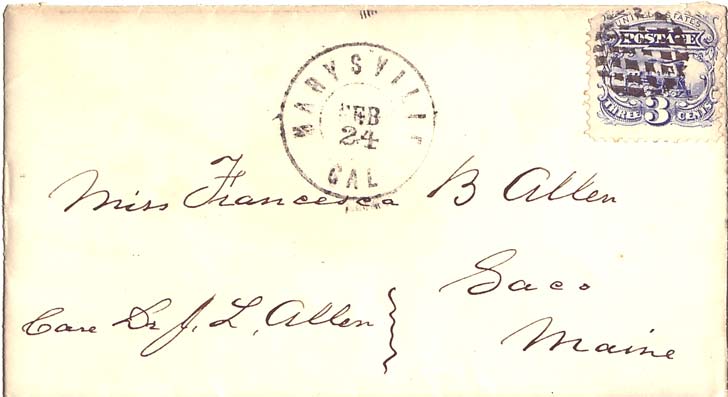 UNITED STATES
POSTAGE
THREE 3 CENTS
MARYSVILLE
FEB
24
CAL
Miss Francesca B Allen
Saco
Maine
Care Dr J. L. Allen